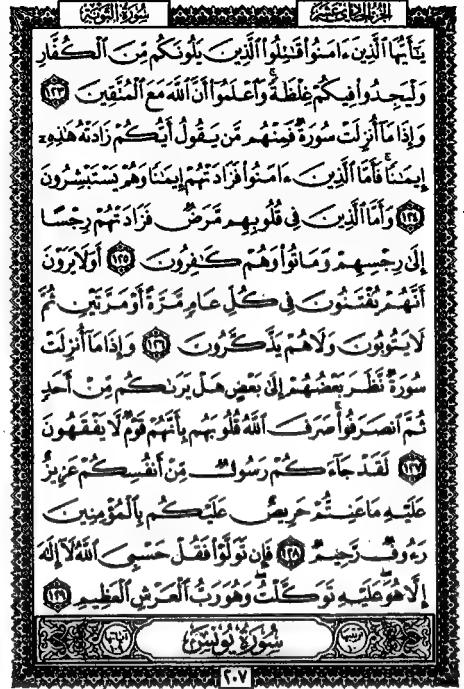 سُورَةُ التَّوْبَةِ
الجُزْءُ الحَادِي عَشَر
يَٰٓأَيُّهَا ٱلَّذِينَ ءَامَنُوا۟ قَٰتِلُوا۟ ٱلَّذِينَ يَلُونَكُم مِّنَ ٱلْكُفَّارِ
وَلْيَجِدُوا۟ فِيكُمْ غِلْظَةً ۚ وَٱعْلَمُوٓا۟ أَنَّ ٱللَّهَ مَعَ ٱلْمُتَّقِينَ ١٢٣
وَإِذَا مَآ أُنزِلَتْ سُورَةٌ فَمِنْهُم مَّن يَقُولُ أَيُّكُمْ زَادَتْهُ هَٰذِهِۦٓ
إِيمَٰنًا ۚ فَأَمَّا ٱلَّذِينَ ءَامَنُوا۟ فَزَادَتْهُمْ إِيمَٰنًا وَهُمْ يَسْتَبْشِرُونَ
١٢٤ وَأَمَّا ٱلَّذِينَ فِى قُلُوبِهِم مَّرَضٌ فَزَادَتْهُمْ رِجْسًا
إِلَىٰ رِجْسِهِمْ وَمَاتُوا۟ وَهُمْ كَٰفِرُونَ ١٢٥ أَوَلَا يَرَوْنَ
أَنَّهُمْ يُفْتَنُونَ فِى كُلِّ عَامٍ مَّرَّةً أَوْ مَرَّتَيْنِ ثُمَّ
لَا يَتُوبُونَ وَلَا هُمْ يَذَّكَّرُونَ ١٢٦ وَإِذَا مَآ أُنزِلَتْ
سُورَةٌ نَّظَرَ بَعْضُهُمْ إِلَىٰ بَعْضٍ هَلْ يَرَىٰكُم مِّنْ أَحَدٍ
ثُمَّ ٱنصَرَفُوا۟ ۚ صَرَفَ ٱللَّهُ قُلُوبَهُم بِأَنَّهُمْ قَوْمٌ لَّا يَفْقَهُونَ
١٢٧ لَقَدْ جَآءَكُمْ رَسُولٌ مِّنْ أَنفُسِكُمْ عَزِيزٌ
عَلَيْهِ مَا عَنِتُّمْ حَرِيصٌ عَلَيْكُم بِٱلْمُؤْمِنِينَ
رَءُوفٌ رَّحِيمٌ ١٢٨ فَإِن تَوَلَّوْا۟ فَقُلْ حَسْبِىَ ٱللَّهُ لَآ إِلَٰهَ
إِلَّا هُوَ ۖ عَلَيْهِ تَوَكَّلْتُ ۖ وَهُوَ رَبُّ ٱلْعَرْشِ ٱلْعَظِيمِ ١٢٩
سُورَةُ يُونُسَ
٢٠٧